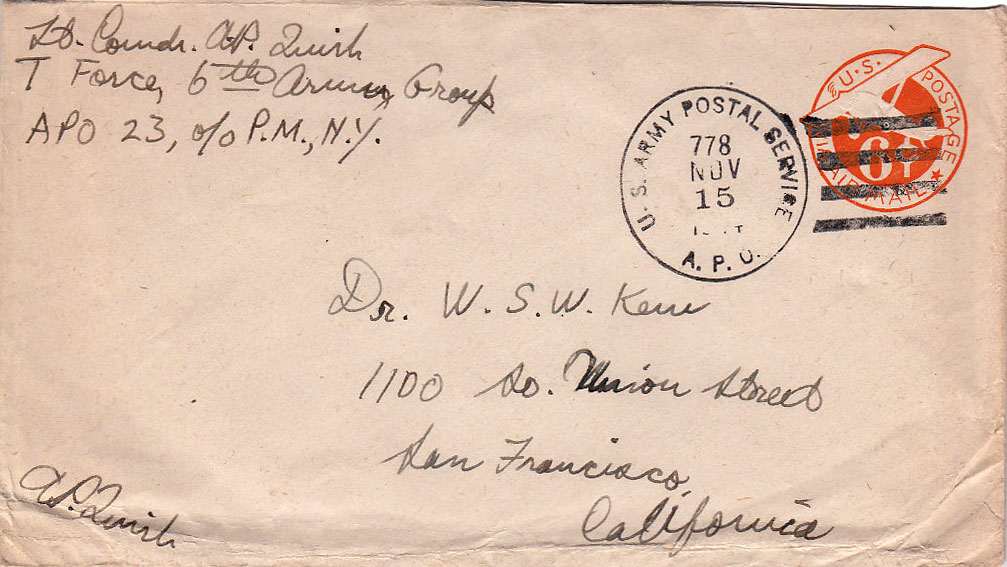 Lt. Comdr. A.P. Quirk
T Force, 6th Army Group
APO 23, c/o P.M., N.Y.
U.S. ARMY POSTAL SERVICE
778
NOV
15
A.P.O.
U.S. POSTAGE
6¢
AIR MAIL
Dr. W. S. W. Kew
1100 So. Union Street
San Francisco,
California
A.P. Quirk